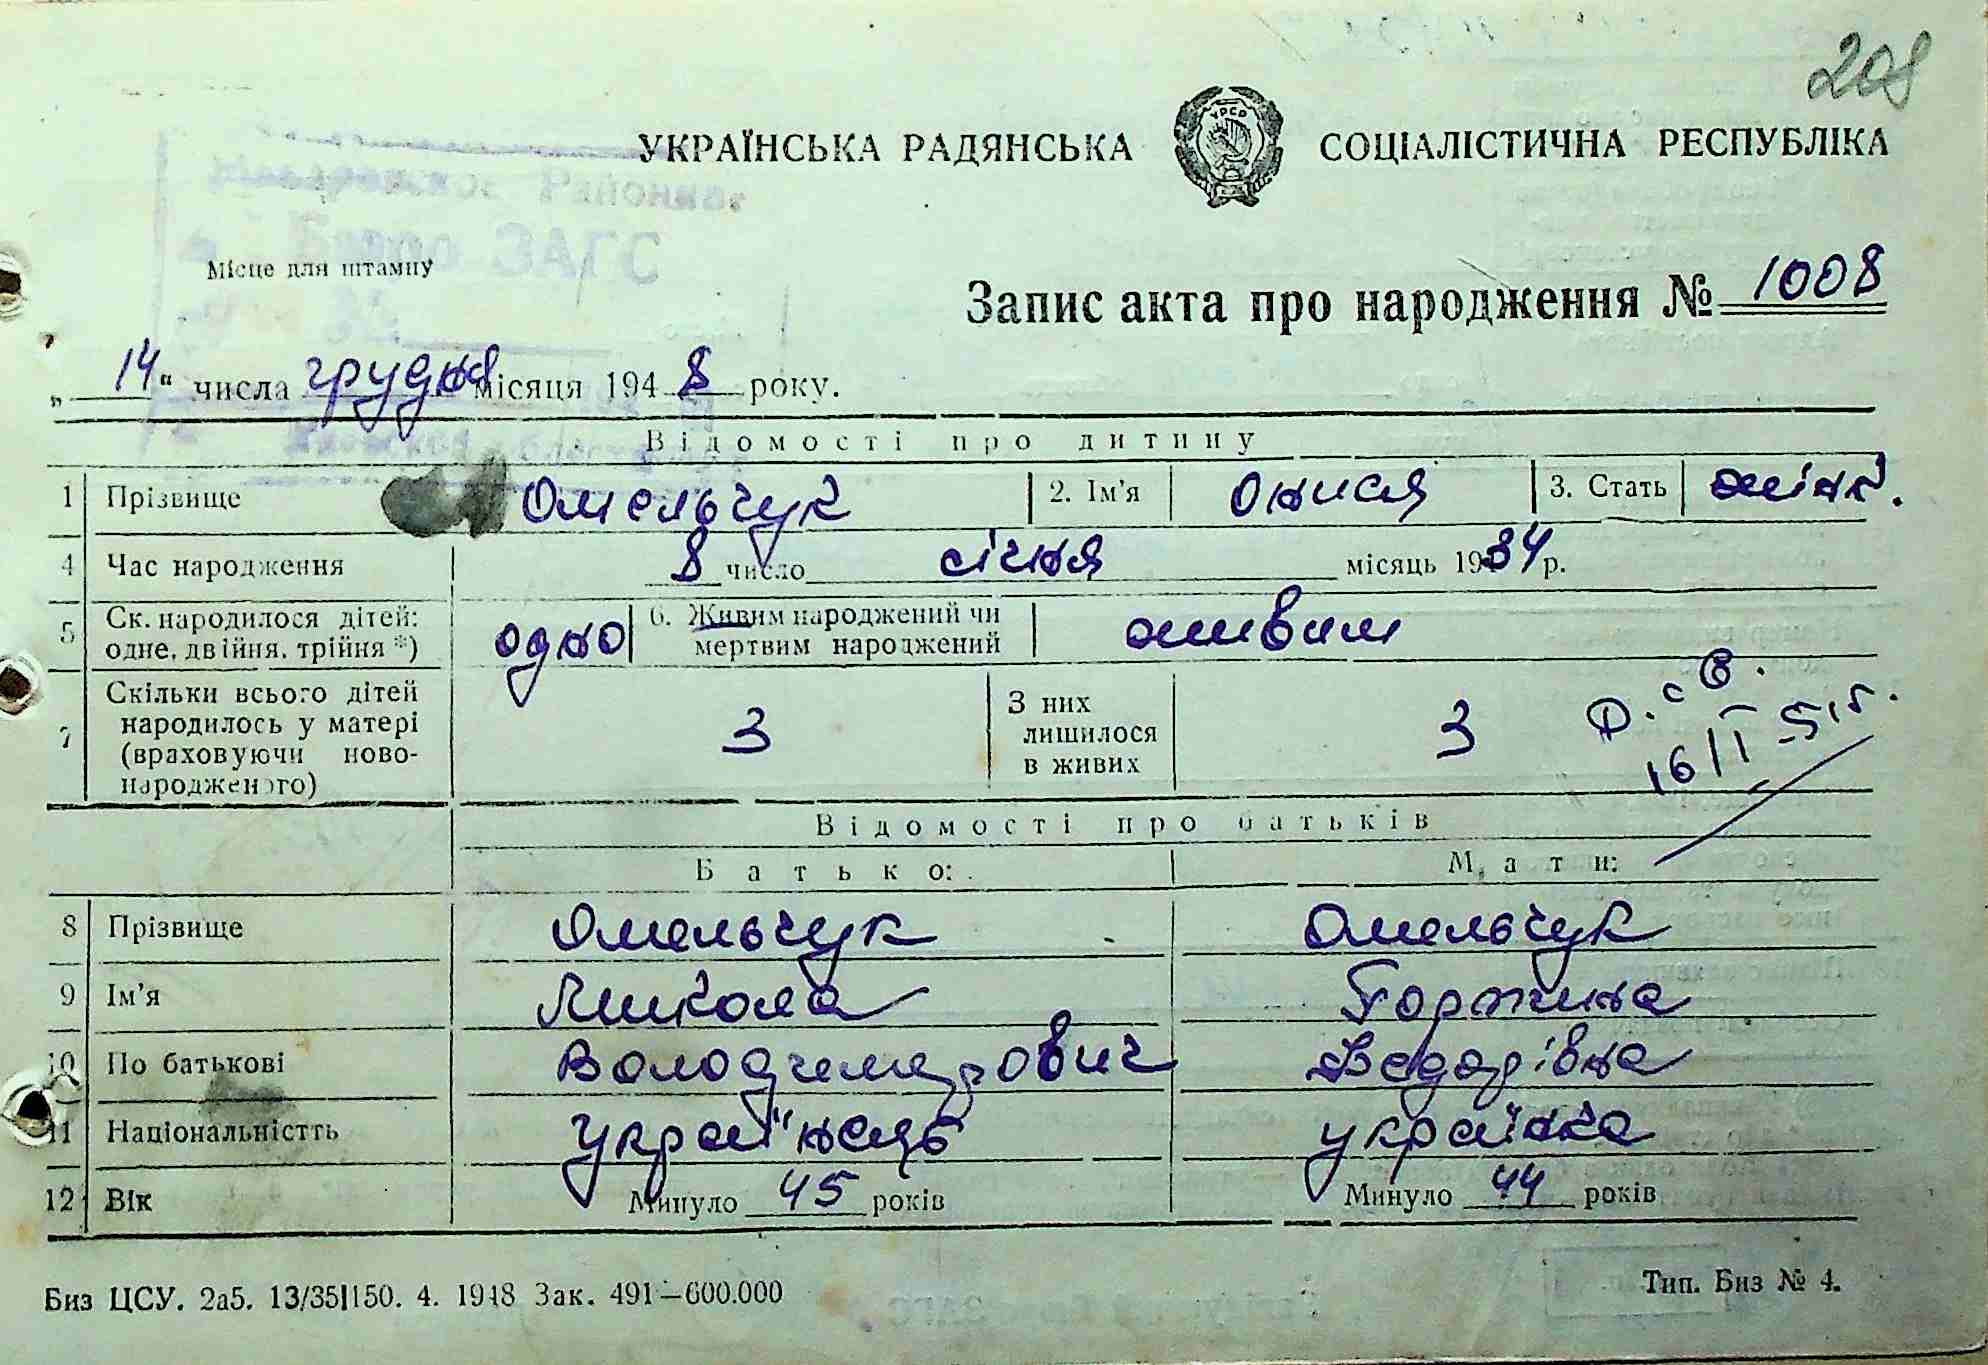 209
УКРАЇНСЬКА РАДЯНСЬКА СОЦІАЛІСТИЧНА РЕСПУБЛІКА
УРСР
Районное
Бюро ЗАГС
Місце для штампу
Запис акта про народження № 1008
„14“ числа грудня місяця 1948 року.
Відомості про дитину
1 Прізвище Омельчук 2. Ім'я Онися 3. Стать жінк.
4 Час народження 8 число січня місяць 1934 р.
5 Ск. народилося дітей: одне, двійня, трійня *) одно 6. Живим народжений чи мертвим народжений живим
7 Скільки всього дітей народилось у матері (враховуючи ново-народженого) 3 З них лишилося в живих 3
16/I-51 г.
Відомості про батьків
Батько: Мати:
8 Прізвище Омельчук Омельчук
9 Ім'я Микола Горпина
10 По батькові Володимирович Федорівна
11 Національністть українець українка
12 Вік Минуло 45 років Минуло 44 років
Биз ЦСУ. 2а5. 13/35|150. 4. 1948 Зак. 491—600.000 Тип. Биз № 4.